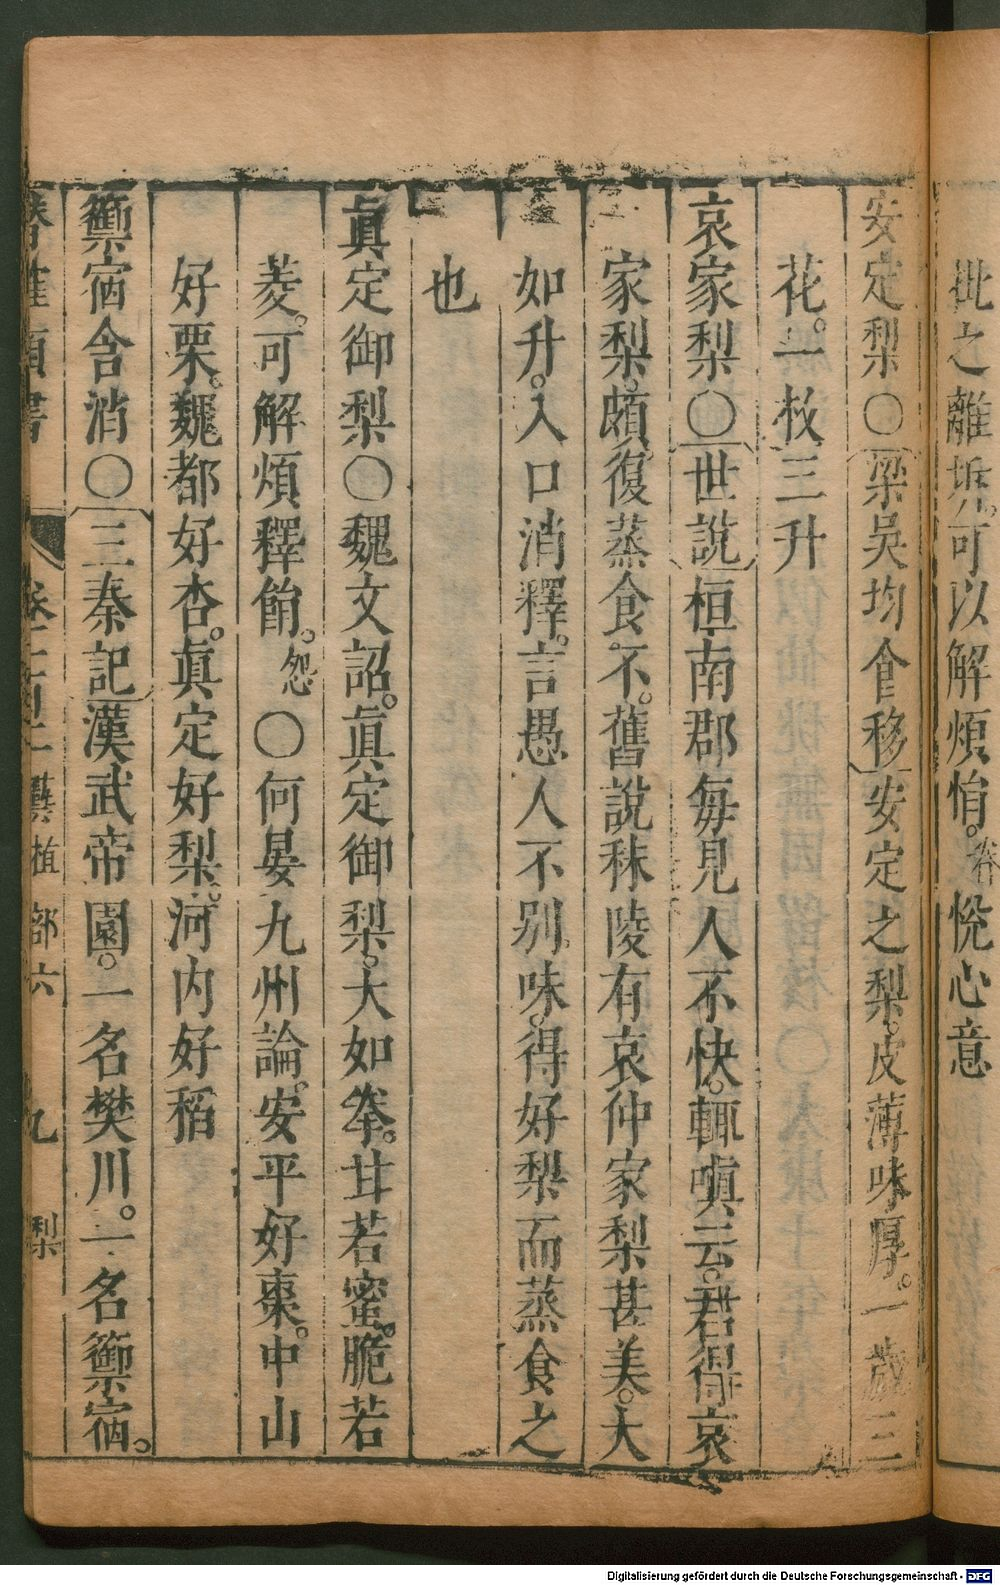 批之離拆。可以解煩悁。 悅心意
安定梨〇梁吳均食移安定之梨。皮薄味厚。一歲三
花。一枚三升
哀家梨〇世說桓南郡每見人不快。輒嗔云。君得哀
家梨。頗復蒸食不。舊說秣陵有哀仲家梨甚美。大
如升。入口消釋。言愚人不別味。得好梨而蒸食之
也
眞定御梨〇魏文詔。眞定御梨。大如拳。甘若蜜。脆若
菱。可解煩釋餶。怨〇何晏九州論。安平好棗。中山
好栗。魏都好杏。眞定好梨。河内好稻
籞宿含消〇三秦記漢武帝園。一名樊川。一名籞宿。
類書 藝植部六 九 梨
Digitalisierung gefördert durch die Deutsche Forschungsgemeinschaft - DFG